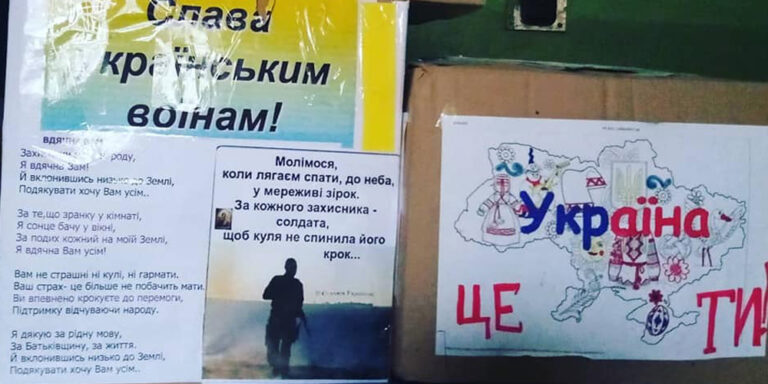 Слава
Українським
воїнам!
вдячна вам
Захисники народу,
Я вдячна Вам!
Й вклонившись низько до Землі,
Подякувати хочу Вам усім..
За те,що зранку у кімнаті,
Я сонце бачу у вікні,
За подих кожний на моїй Землі,
Я вдячна Вам усім!
Вам не страшні ні кулі, ні гармати.
Ваш страх- це більше не побачить мати.
Ви впевнено крокуєте до перемоги,
Підтримку відчуваючи народу.
Я дякую за рідну мову,
За Батьківщину, за життя.
Й вклонившись низько до Землі,
Подякувати хочу Вам усім..
Молімося,
коли лягаєм спати, до неба,
у мереживі зірок.
За кожного захисника -
солдата,
щоб куля не спинила його
крок...
Україна
ЦЕ ТИ!